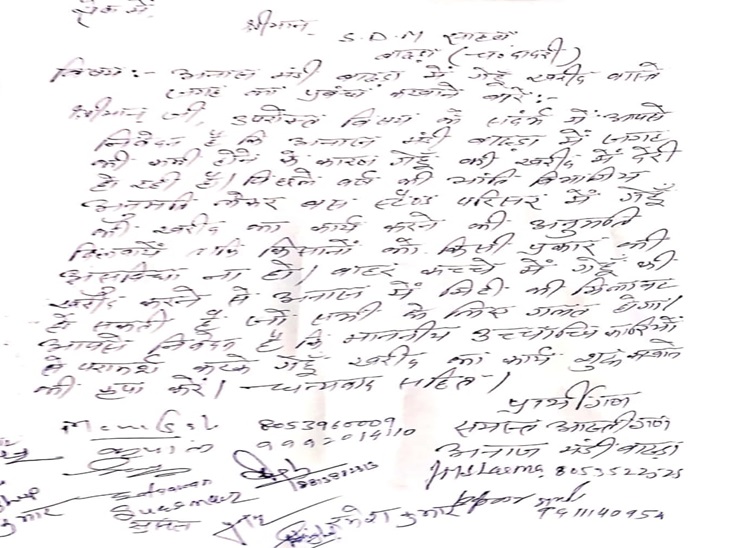 सेवा में,
श्रीमान S.D.M साहब
बाढड़ा (च० दादरी)
विषय:- अनाज मंडी बाढड़ा में गेहूँ खरीद वास्ते
जगह का प्रबंध करवाने बारे:-
श्रीमान जी, उपरोक्त विषय के संदर्भ में आपसे
निवेदन है कि अनाज मंडी बाढड़ा में जगह
की कमी होने के कारण गेहूँ की खरीद में देरी
हो रही है। पिछले वर्ष की भांति विभागीय
अनुमति लेकर बस स्टैंड परिसर में गेहूँ
की खरीद का कार्य करने की अनुमति
दिलवायें ताकि किसानों को किसी प्रकार की
असुविधा ना हो। बाहर कच्चे में गेहूँ की
खरीद करने से अनाज में मिट्टी की मिलावट
हो सकती है जो सभी के लिए गलत होगा।
आपसे निवेदन है कि माननीय उच्चाधिकारियों
से परामर्श करके गेहूँ खरीद का कार्य शुरू करवाने
की कृपा करें। धन्यवाद सहित-
प्रार्थीगण
समस्त आढ़तीगण
अनाज मंडी बाढड़ा
8053960009
8053522525
रमेश कुमार